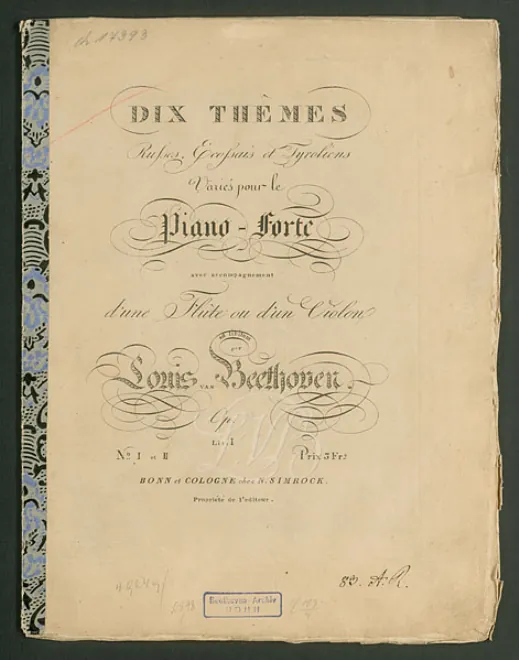 DIX THÈMES
Russes, Ecossais et Tyroliens
Variés pour le
Piano - Forte
avec accompagnement
d'une Flûte ou d'un Violon
ad libitum
par
Louis VAN Beethoven.
Op.
Liv. I
No. I et II Prix 3 Frs
BONN et COLOGNE chez N. SIMROCK.
Propriété de l'editeur.
83. A.R.
Beethoven-Archiv
BONN